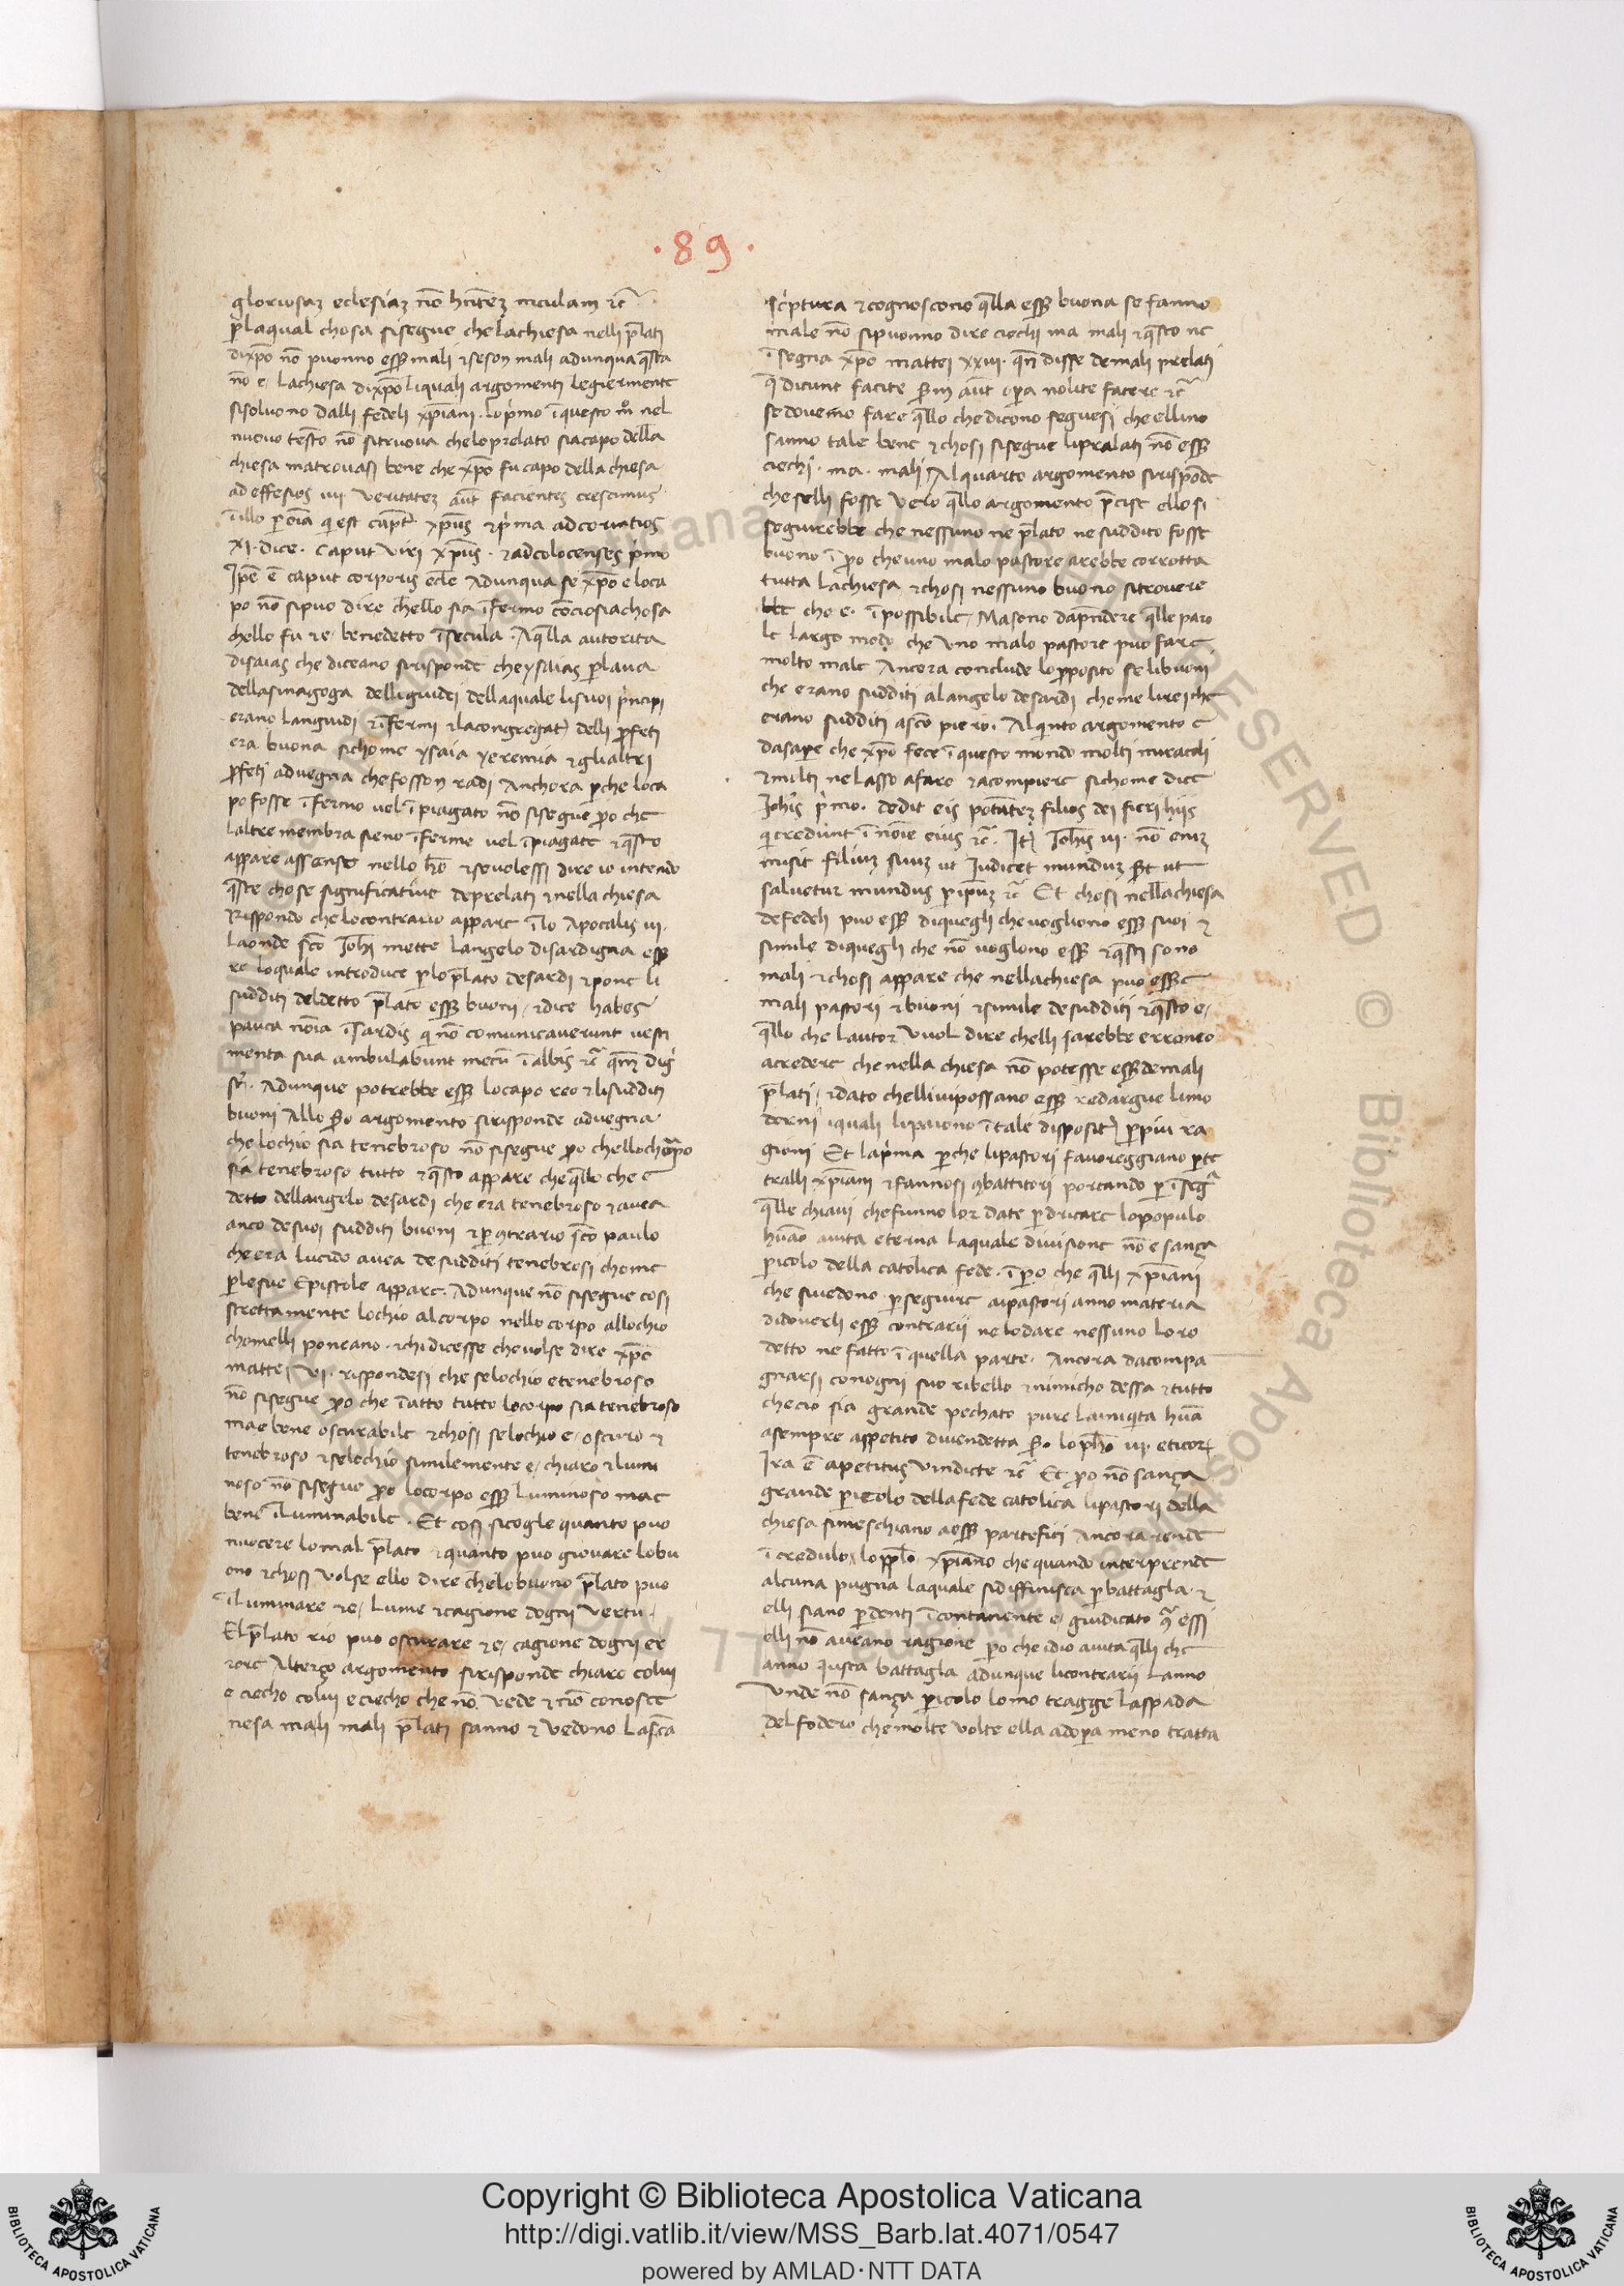 ·89·
gloriosaȝ eclesiaȝ nō hñteȝ maculam ⁊c̃
p̱ laqual chosa sisegue che lachiesa nelli p̄lati
dixp̄o nō puonno esser̄ mali ⁊ seson mali adunqua q̄sta
nō e lachiesa dixp̄o liquali argomenti legiermente
sisoluono dalli fedeli xp̄iani. lo p̍mo ī questo mͦ nel
nuouo testo nō sitruoua chelo prelato siacapo della
chiesa matrouasi bene che xp̄o fu capo della chiesa
ad effesios iiii veritateȝ aūt facientes crescimus
ī illo p̱ oīa qi est capt̄ xp̄us ⁊ p̍ma ad corintios
xi. dice. caput viri xp̄us. ⁊ adcolocenses p̍mo
Ip̄e ē caput corporis ecl̄e Adunqua se xp̄o e loca
po nō sipuo dire chello sia īfermo cōciosiachosa
chello fu ⁊ e benedetto ī secula. A q̄lla autorita
disaias che diceano sirisponde che ysaias p̱laua
dellasinagoga delli giudei dellaquale li suoi p̍ncipi
erano languidi ⁊ īfermi ⁊ lacongregat̄ delli p̱feti
era buona sichome ysaia yeremia ⁊ glialtri
p̱feti aduegna che fosson radi Anchora p̱che loca
po fosse īfermo uel īpiagato nō sisegue p̱o che
laltre membra sieno īferme uel īpiagate ⁊ q̄sto
appare assenso nello hō ⁊ seuolessi dire io intendo
q̄ste chose significatiue deprelati ⁊ nella chiesa
Rispondo che locontrario appare ī lo Apocalis iii.
laonde sc̄o Ioh̄i mette langelo disardigna esser̄
re loquale introduce p̱ lo p̄lato desardi ⁊ pone li
sudditi deldetto p̄lato esser̄ buoni, ⁊ dice habes
pauca nōia ī sardis qi nō comunicauerunt uesti
menta sua ambulabunt mecū ī albis ⁊c̃ qm̄ dig̍
st̄. Adunque potrebbe esser̄ locapo reo ⁊ lisudditi
buoni Allo s̱o argomento sirisponde aduegna
che lochio sia tenebroso nō sisegue p̱o chello chorpo
sia tenebroso tutto ⁊ q̄sto appare che q̄llo che e
detto dellangelo desardi che era tenebroso ⁊ auea
anco desuoi sudditi buoni ⁊ p̱ 9trario sc̄o paulo
che era lucido auea de sudditi tenebrosi chome
p̱ lesue Epistole appare. Adunque nō sisegue cosi
strettamente lochio al corpo nello corpo allochio
chomelli poneano. ⁊ chi dicesse che uolse dire xp̄o
mattei vi. rispondesi che selochio e tenebroso
nō sisegue p̱o che ī atto tutto locorpo sia tenebroso
mae bene oscurabile ⁊ chosi selochio e oscuro ⁊
tenebroso ⁊ selochio similemente e chiaro ⁊ lumi
noso nō sisegue p̱o locorpo esser̄ luminoso mae
bene iluminabile. Et cosi sicogle quanto puo
nuocere lomal p̄lato ⁊ quanto puo giouare lobu
ono ⁊ chosi volse ello dire che lobuono p̄lato puo
iluminare ⁊ e lume ⁊ cagione dogni vertu.
El p̄lato rio puo oscurare ⁊ e cagione dogni er
rore Alterço argomento sirisponde chiaro colui
e ciecho colui e ciecho che nō vede ⁊ nō conosce
nesa mali mali p̄lati sanno ⁊ vedono lasc̄a
scp̍tura ⁊ cognoscono q̄lla esser̄ buona se fanno
male nō sipuonno dire ciechi ma mali ⁊ q̄sto ne
īsegna xp̄o mattei xxiii. qn̄ disse demali prelati
q̄ dicunt facite s̱m aūt op̱a nolite facere ⁊c̃
se douemo fare q̄llo che dicono seguesi che ellino
sanno tale bene ⁊ chosi sisegue liprelati nō esser̄
ciechi. ma. mali Al quarto argomento sirispōde
che selli fosse vero q̄llo argomento p̄cise ello si
seguirebbe che nessuno ne p̄lato ne suddito fosse
buono ī p̱o che uno malo pastore arebbe corrotta
tutta lachiesa ⁊ chosi nessuno buono sitrouere
bbe che e. īpossibile, Masono dap̄ndere q̄lle paro
le largo modo che vno malo pastore puo fare
molto male Ancora conclude lo p̱posito se libuoni
che erano sudditi alangelo desardi chome lireiche
erano sudditi asc̄o piero. Al q̍nto argomento e
dasapere che xp̄o fece ī questo mondo molti miracoli
⁊ molti ne lasso afare ⁊ acompiere sichome dice
Joh̄is p̍mo. dedit eis potestateȝ filios dei fieri hiis
qi credunt ī nōie eius ⁊c̃. It̄ Ioh̄is iii. nō eniȝ
misit filiuȝ suuȝ ut Iudicet munduȝ s̱t ut
saluetur mundus p̱ ip̄uȝ ⁊c̃ Et chosi nellachiesa
de fedeli puo esser̄ diquegli che uogliono esser̄ suoi ⁊
simile diquegli che nō uoglono esser̄ ⁊ q̄sti sono
mali ⁊ chosi appare che nellachiesa puo essere
mali pastori ⁊ buoni ⁊ simile desudditi ⁊ q̄sto e
q̄llo che lautor vuol dire chelli sarebbe erroneo
acredere che nella chiesa nō potesse esser̄ demali
p̄lati, ⁊ dato chelliuipossano esser̄ redargue limo
derni iquali lipuiono ī tale disposit̄ p̱ piu ra
gioni Et lap̍ma p̱che lipastori fauoreggiano p̱te
tralli xp̄iani ⁊ fannosi 9battitori portando p̱ īsegᵃ
q̄lle chiaui che funno lor date p̱ dricare lopopulo
hūāo auita eterna laquale diuisione nō e sança
p̱icolo della catolica fede. ī p̱o che q̄lli xp̄iani
che siuedono p̱seguire aipastori anno materia
didouerli esser̄ contrarii ne lodare nessuno loro
detto ne fatto ī quella parte. Ancora dacompa
gnarsi conogni suo ribello ⁊ nimicho dessa ⁊ tutto
checio sia grande pechato pure lainiq̍ta hūā
asempre appetito diuendetta s̱o. lo ph̄o iii. eticorꝝ
Ira ē apetitus vindicte ⁊c̃ Et p̱o nō sança
grande p̱icolo della fede catolica lipastori della
chiesa simeschiano aesser̄ partefici Ancora rende
īcredulo lo pp̄lo xp̄iano che quando interprende
alcuna pugna laquale sidiffinisca p̱ battagla. ⁊
elli siano p̱denti īcontanente e giudicato qᵃ essi
elli nō aueano ragione p̱o che idio aiuta q̄lli che
anno iusta battagla adunque licontrarii lanno
Vnde nō sança p̱icolo lomo tragge laspada
del fodero che molte volte ella adop̱a meno tratta
Copyright © Biblioteca Apostolica Vaticana
http://digi.vatlib.it/view/MSS_Barb.lat.4071/0547
powered by AMLAD·NTT DATA
BIBLIOTECA APOSTOLICA VATICANA
BIBLIOTECA APOSTOLICA VATICANA